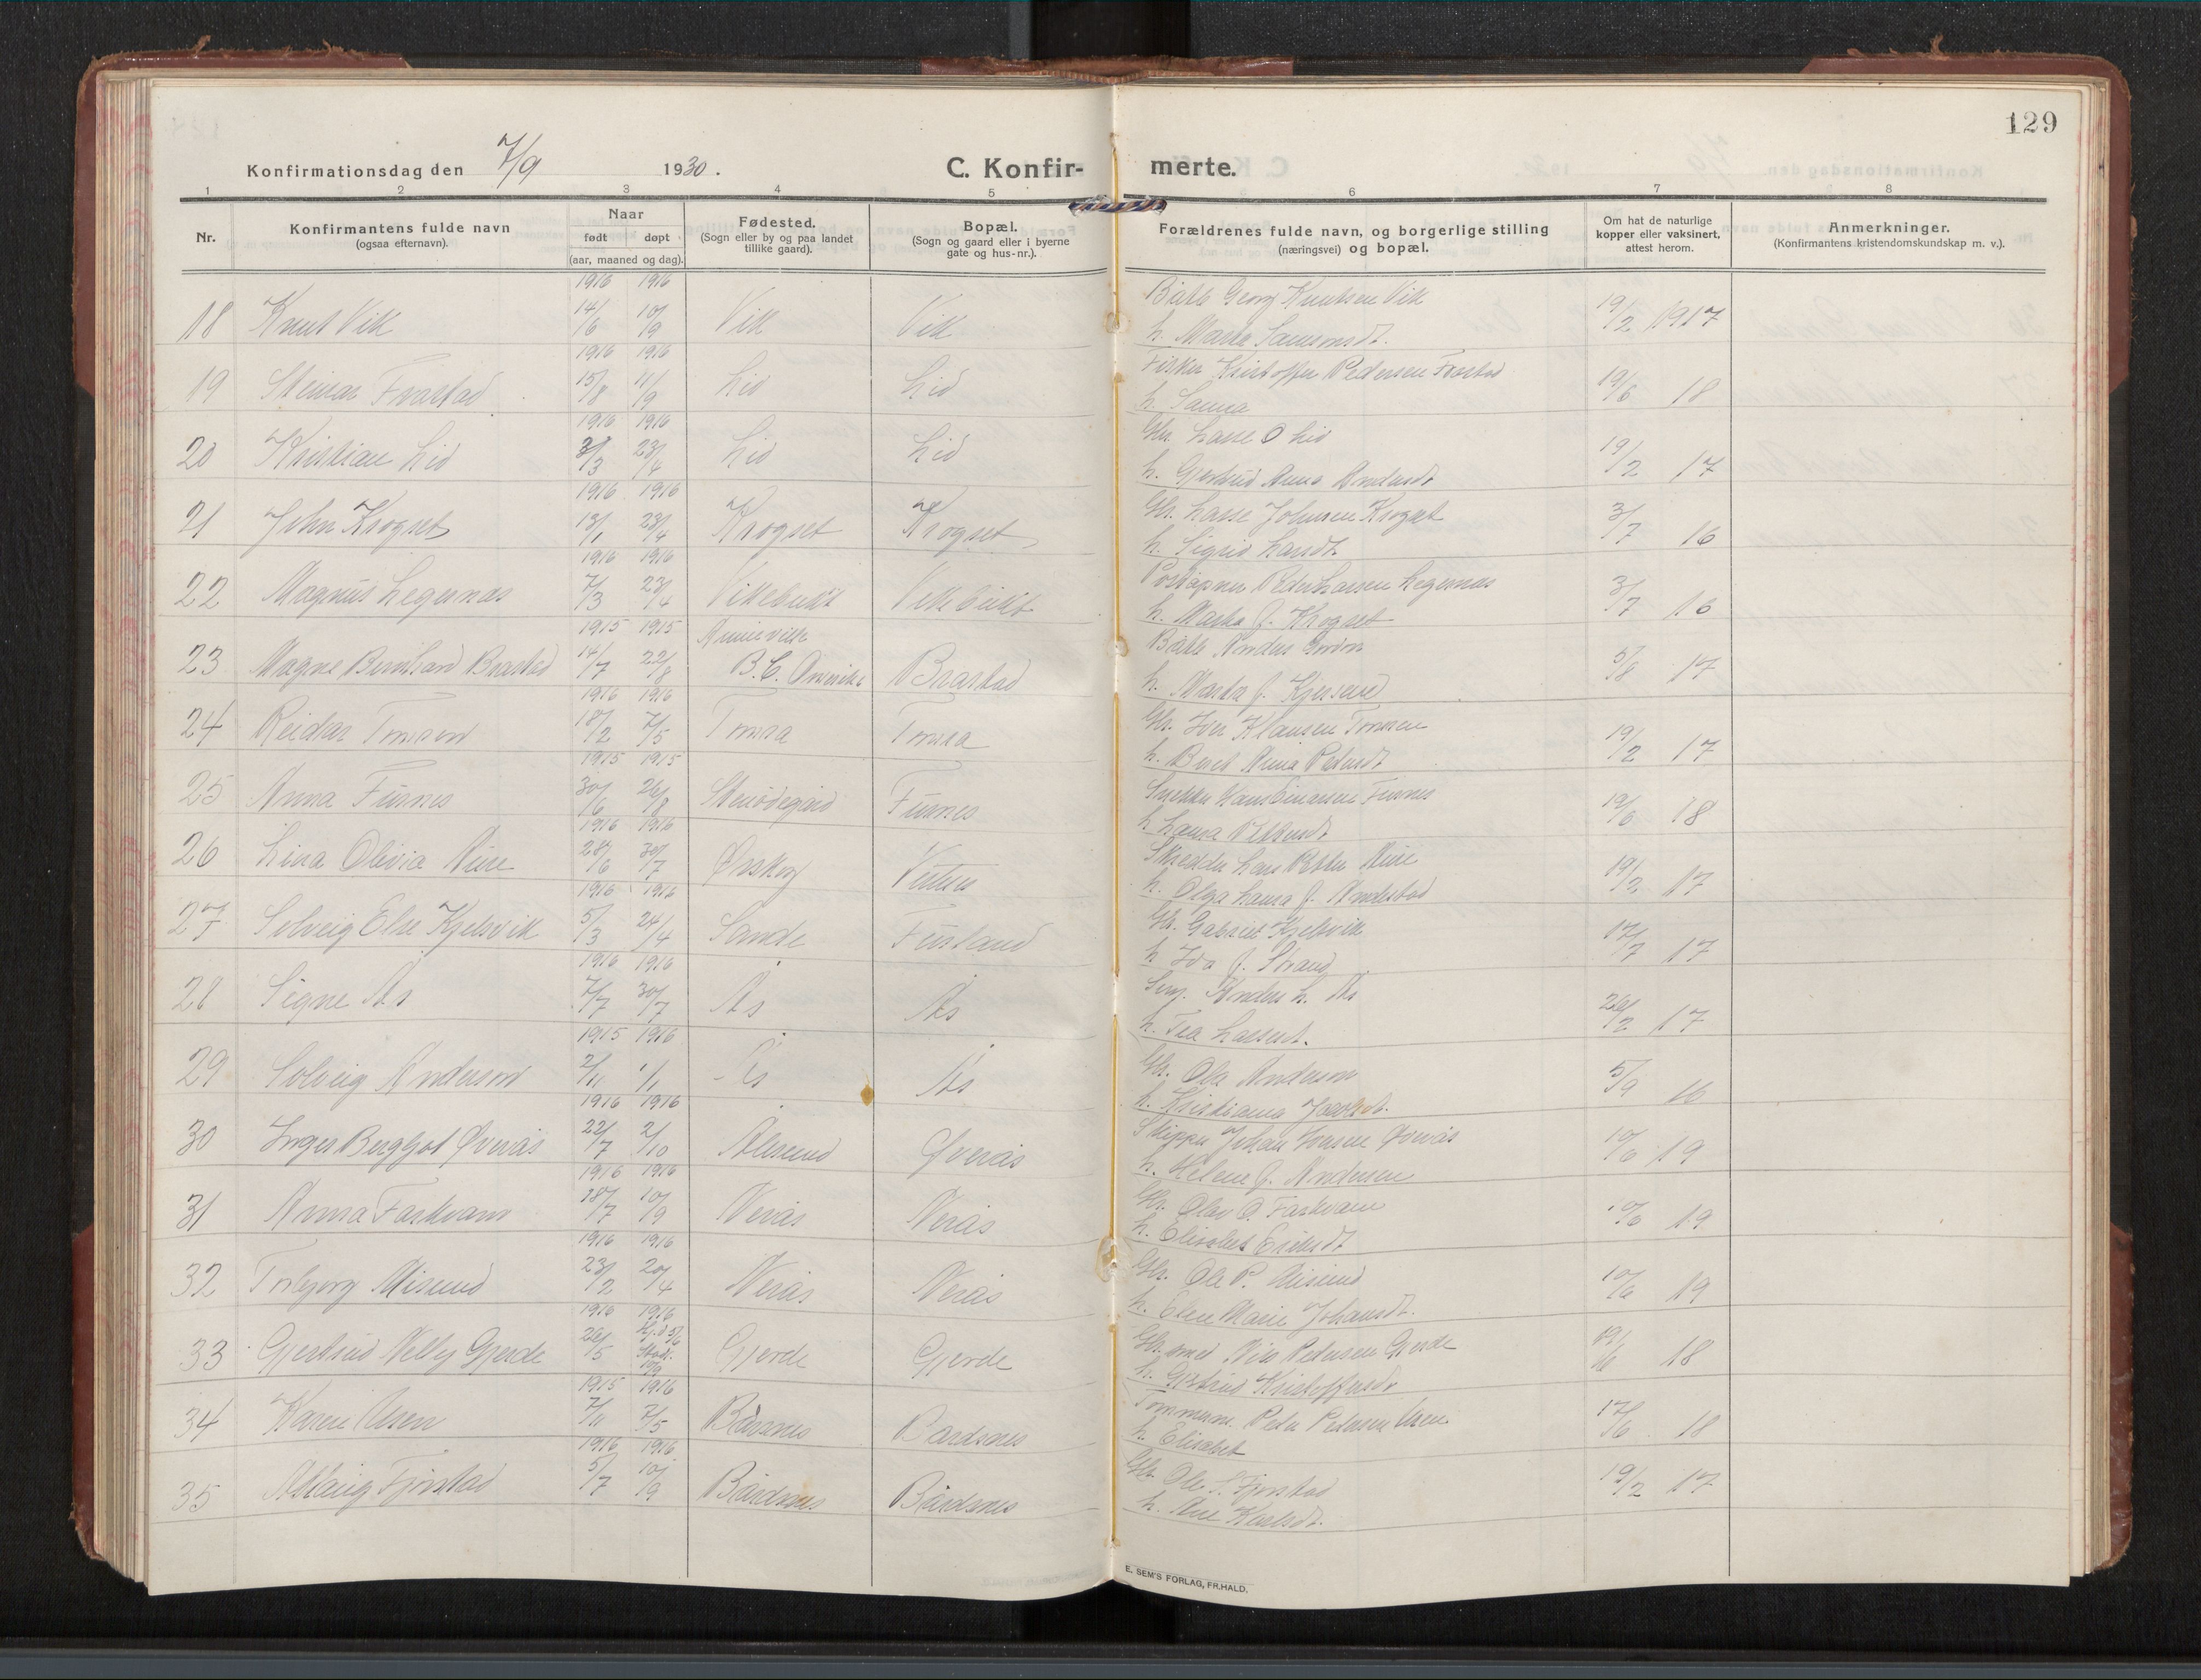 129
Konfirmationsdag den 7/9 1930.
C. Konfir- merte.
1 2 3 4 5 6 7 8
Nr.
Konfirmantens fulde navn
(ogsaa efternavn).
Naar
født døpt
(aar, maaned og dag).
Fødested.
(Sogn eller by og paa landet
tillike gaard).
Bopæl.
(Sogn og gaard eller i byerne
gate og hus-nr.).
Forældrenes fulde navn, og borgerlige stilling
(næringsvei) og bopæl.
Om hat de naturlige
kopper eller vaksinert,
attest herom.
Anmerkninger.
(Konfirmantens kristendomskundskap m. v.).
1916 1916
Georg Knutsen Vik
18 Knut Vik 14/6 10/9 Vik Vik 19/2 1917
h. Marta
1916 1916
Fisker Kristoffer Pedersen
19 Steinar 15/8 11/9 Lid Lid 19/6 18
h. Sanna
1916 1916
Gbr. Lasse O Lid
20 Kristian Lid 3/3 23/4 Lid Lid 19/2 17
h. Gjertrud Anna
1916 1916
Gbr. Lasse Johnsen Krogset
21 John Krogset 13/1 23/4 Krogset Krogset 3/7 16
h. Sigrid Larsdt.
1916 1916
Peder Larsen Legernæs
22 Magnus Legernæs 7/3 23/4 Vikebukt Vikebukt 3/7 16
h. Marta J. Krogset
1915 1915
Annieville
Anders
23 Magne Bernhard Brastad 14/7 22/8 B.C. Amerika Brastad 5/8 17
h. Marta J.
1916 1916
Gbr. Iver Klausen Tomren
24 Reidar Tomren 18/2 7/5 Tomra Tomra 19/2 17
h. Beret Anna Pedersdt
1915 1915
Furnes
25 Anna Furnes 30/6 26/8 Stenødegård Furnes 19/6 18
h Laura
1916 1916
Skredder Lars Petter
26 Lina Olivia 28/6 30/7 Ørskog 19/2 17
h. Olga Laura J.
1916 1916
Gbr. Gabriel Kjelsvik
27 Solveig Else Kjelsvik 5/3 24/4 Sande Fursland 17/7 17
h Ida J. Strand
1916 1916
Anders L. Ås
28 Signe Ås 7/7 30/7 Ås Ås 26/2 17
h. Tea Larsdt.
1915 1916
Gbr. Ole Anderson
29 Solveig Anderson 2/11 1/1 Ås Ås 5/9 16
h. Kristianna
1916 1916
Skipper Johan Iversen Øverås
30 Inger Bergljot Øverås 22/7 2/10 Ålesund Øverås 10/6 19
h. Helene J. Andersen
1916 1916
Gbr. Olav O. Farkvam
31 Anna Farkvam 18/7 10/9 Nerås Nerås 10/6 19
h. Elisabet Eriksdt
1916 1916
Gbr. Ole P. Misund
32 Torbjørg Misund 23/2 20/4 Nerås Nerås 10/6 19
h. Elen Marie Johansdt.
1916 1916
Hj.d 5/6
Gbr. smed Nils Pedersen Gjerde
33 Gjertrud Nelly Gjerde 26/5 Stadf. 10/9 Gjerde Gjerde 19/6 18
h. Gjertrud Kristoffersdt
1915 1916
Tømmerm. Peder Pedersen
34 Karen 7/11 7/5 Bårdsnes Bårdsnes 17/6 18
h. Elisabet
1916 1916
Gbr. Ole S. Fjørstad
35 Aslaug Fjørstad 5/7 10/9 Bårdsnes Bårdsnes 19/2 17
h. Ane Karlsdt.
E. SEM'S FORLAG, FR.HALD.